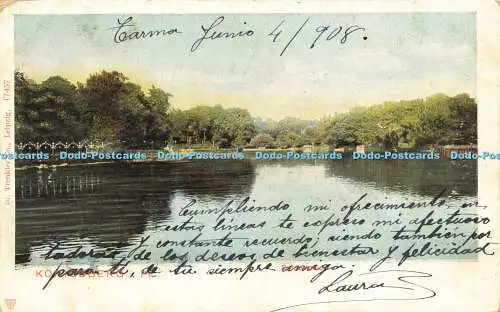 Tarma Junio 4/908.
Dodo-Postcards Dodo-Postcards Dodo-Postcards Dodo-Postcards Dodo-Postcards
Cumpliendo mi ofrecimiento, en
estas lineas te expreso mi afectuoso
y constante recuerdo; siendo también por
tadoras de los deseos de bienestar y felicidad
para ti, de tu siempre amiga.
Laura
Trenkler Leipzig. 17457